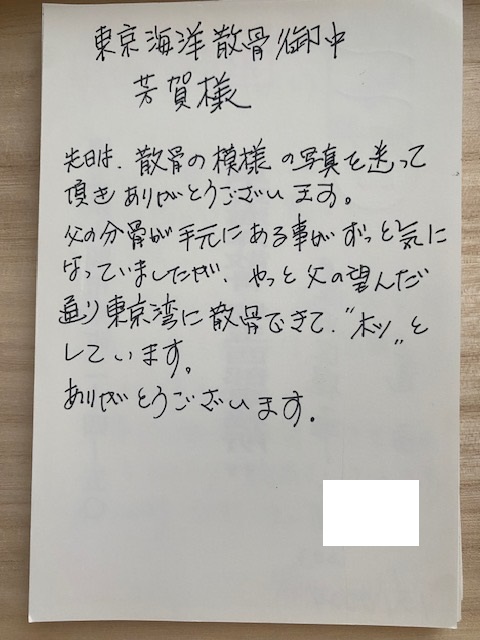 東京海洋散骨御中
芳賀様
先日は、散骨の模様の写真を送って
頂きありがとうございます。
父の分骨が手元にある事がずっと気に
なっていましたが、やっと父の望んだ
通り東京湾に散骨できて、"ホッ„と
しています。
ありがとうございます.